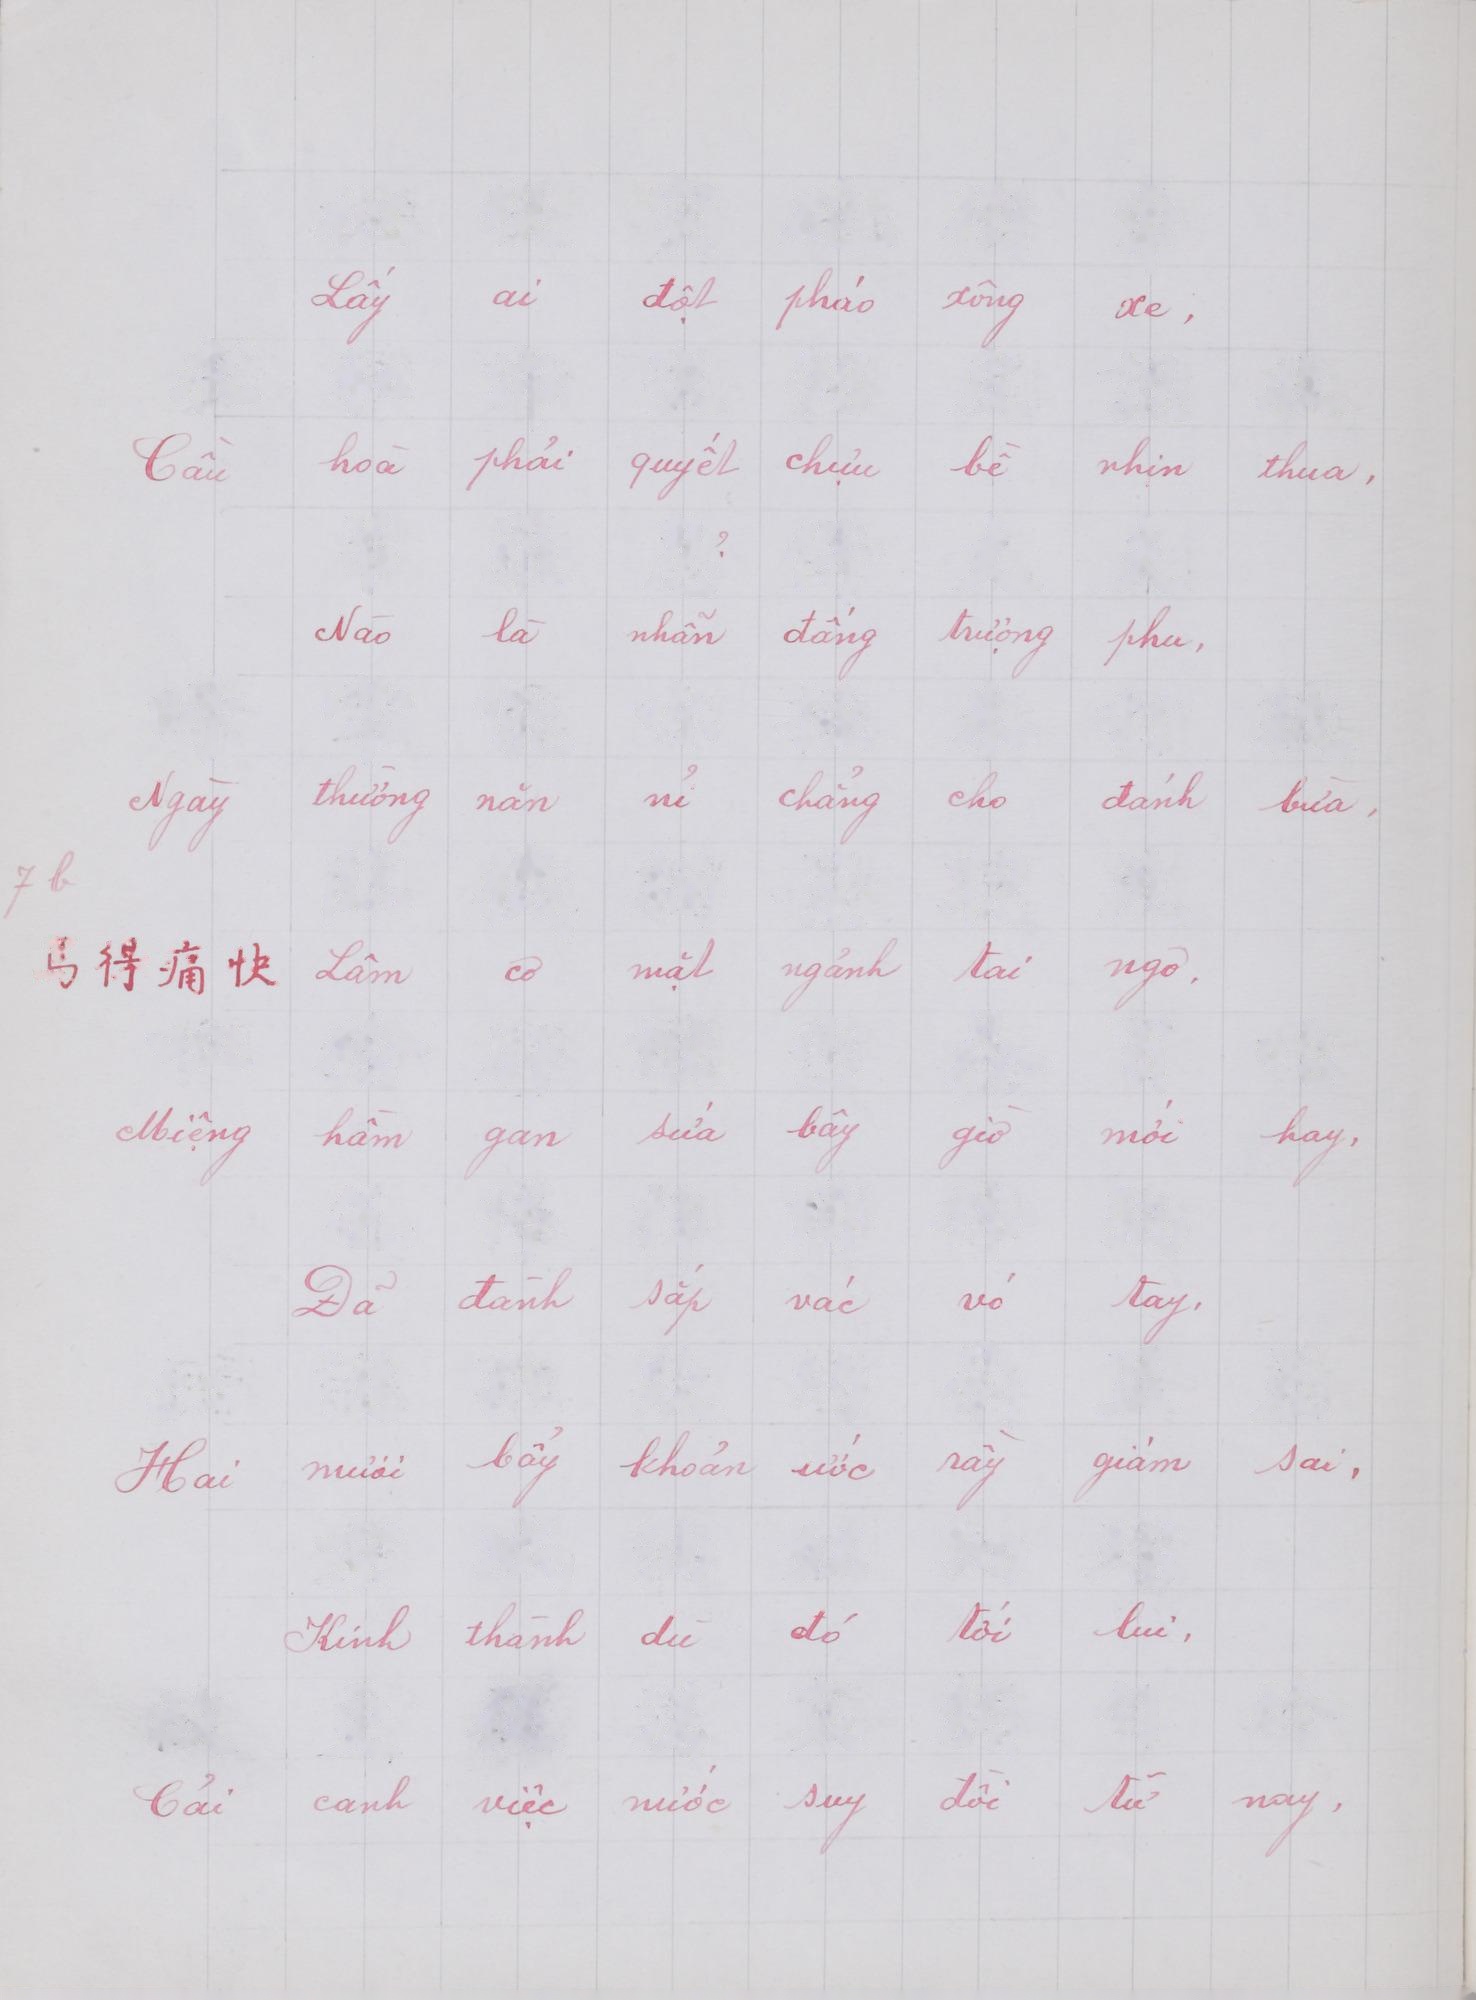 Lấy ai đột pháo xông xe,
Cầu hoà phải quyết chựu bề nhịn thua,
?
Nào là nhẫn đấng trượng phu,
Ngày thường năn nỉ chẳng cho đánh bừa,
7b
得痛快 Lâm cơ mặt ngảnh tai ngơ,
Miệng hầm gan sứa bây giờ mới hay,
Đã đành sấp vác vó tay,
Hai mươi bẩy khoản ước rầy giám sai,
Kinh thành dù đó tới lui,
Cải canh việc nước suy đồi từ nay,